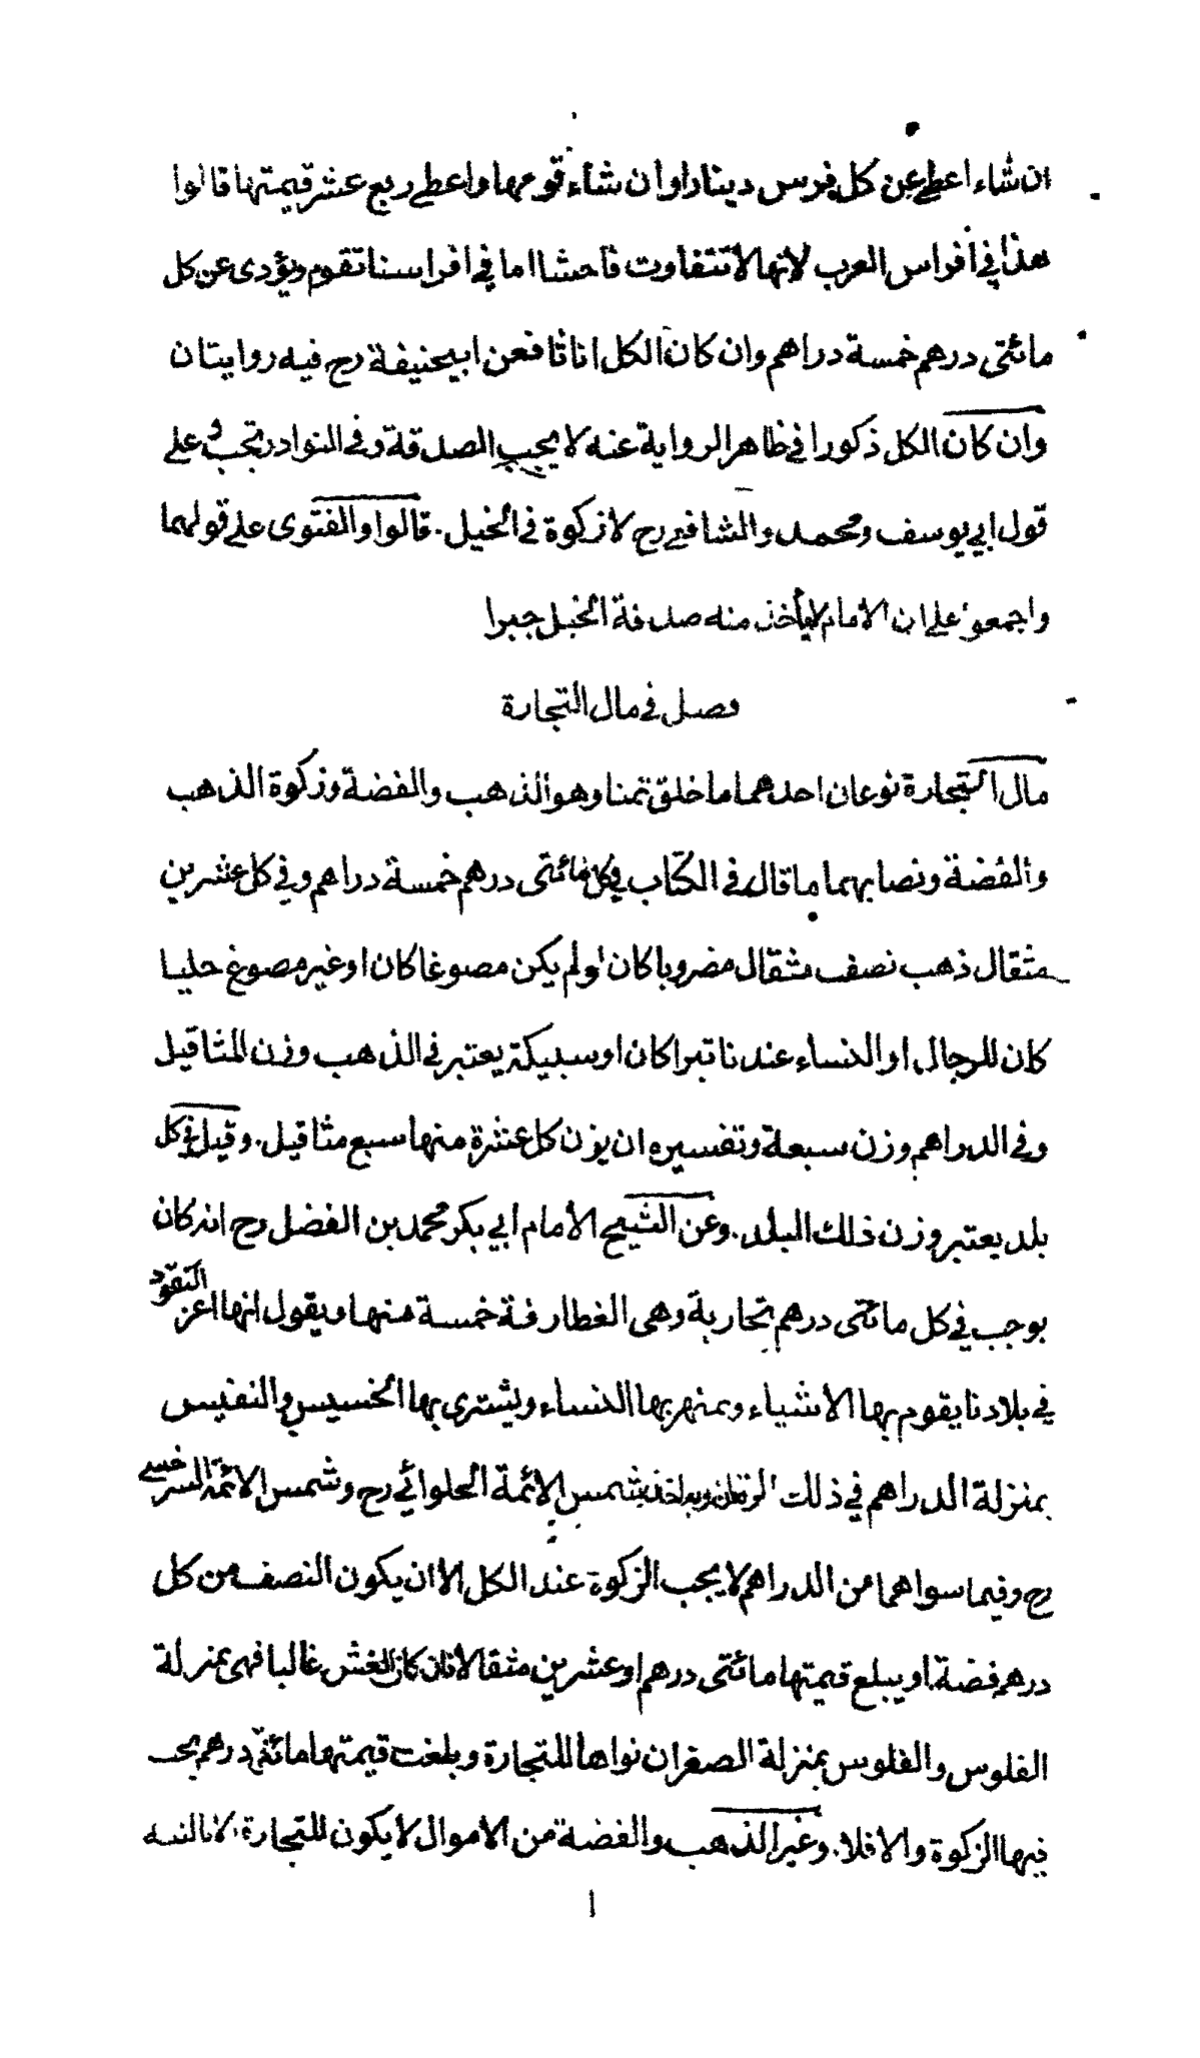 ان شاء اعطى عن كل فرس دينارا وان شاء قومها واعطى ربع عشر قيمتها قالوا
هذا في افراس العرب لانها لا تتفاوت فاحشا اما في افراسنا تقوم ويؤدى عن كل
مائتى درهم خمسة دراهم وان كان الكل اناثا فعن ابيحنيفة رح فيه روايتان
وان كان الكل ذكورا في ظاهر الرواية عنه لا يجب الصدقة وفى النوادر تجب وعلى
قول ابي يوسف ومحمد والشافعي رح لا زكوة في الخيل. قالوا والفتوى على قولهما
واجمعوا على ان الامام لا يأخذ منه صدقة الخيل جبرا
فصل في مال التجارة
مال التجارة نوعان احدهما ما خلق ثمنا وهو الذهب والفضة وزكوة الذهب
والفضة ونصابهما ما قال في الكتاب في كل مائتى درهم خمسة دراهم وفي كل عشرين
مثقال ذهب نصف مثقال مضروبا كان او لم يكن مصوغا كان او غير مصوغ حليا
كان للرجال او النساء عندنا تبرا كان او سبيكة يعتبر في الذهب وزن المثاقيل
وفى الدراهم وزن سبعة وتفسيره ان يزن كل عشرة منها سبع مثاقيل. وقيل في كل
بلد يعتبر وزن ذلك البلد. وعن الشيخ الامام ابي بكر محمد بن الفضل رح انه كان
يوجب في كل مائتى درهم بخارية وهى الغطارفة خمسة منها ويقول انها اعز النقود
في بلادنا يقوم بها الاشياء ويمهر بها النساء ويشترى بها الخسيس والنفيس
بمنزلة الدراهم في ذلك الزمان وبه اخذ شمس الائمة الحلوائي رح وشمس الائمة السرخسي
رح وفيما سواهما من الدراهم لا يجب الزكوة عند الكل الا ان يكون النصف من كل
درهم فضة او يبلع قيمتها مائتى درهم او عشرين مثقالا فان كان الغش غالبا فهى بمنزلة
الفلوس والفلوس بمنزلة الصفر ان نواها للتجارة وبلغت قيمتها مائتي درهم يجب
فيها الزكوة والا فلا. وغير الذهب والفضة من الاموال لا يكون للتجارة الا بالنية
ا